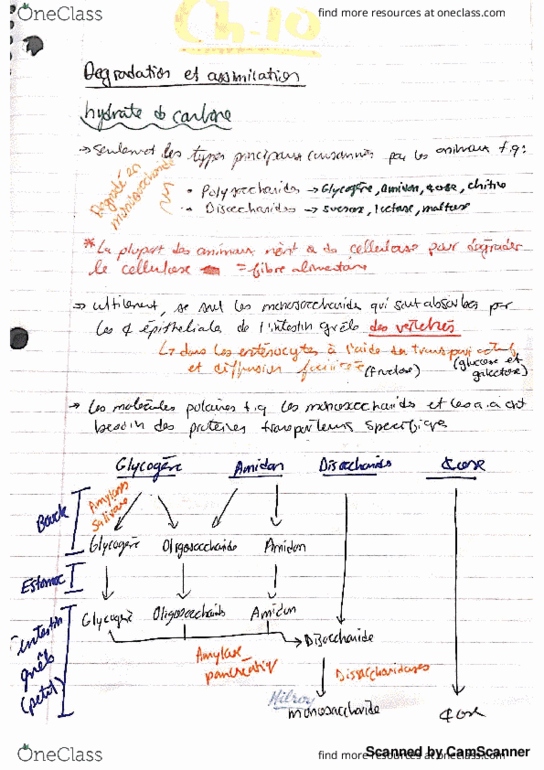 OneClass
find more resources at oneclass.com
Ch-10
Degradation et assimilation
hydrate de carbone
→ seulement les types principaux consommés par les animaux t.q:
Dégradé en monosaccharide
• Polysaccharides → Glycogène, amidon, ¢ose, chitine
• Disaccharides → sucrose, lactose, maltose
* La plupart des animaux n'ont de cellulase pour dégrader
le cellulose = fibre alimentaire
→ ultiment, se sont les monosaccharide qui sont absorbés par
les ¢ épithéliale de l'intestin grêle des vertébrés
↳ dans les entérocytes à l'aide de transport actif
et diffusion facilitée (fructose)
(glucose et galactose)
→ Les molécules polaires t.q les monosaccharides et les a.a ont
besoin des protéines transporteurs spécifique
Glycogène Amidon Disaccharides ¢ose
Bouche
Amylase Salivaire
Glycogène Oligosaccharide Amidon
Estomac
intestin grêle (petit)
Glycogène Oligosaccharids Amidon
→ Disaccharide
Amylase pancréatiq
Disaccharidases
Hilroy
monosaccharide ¢ose
OneClass
find more resources at oneclass.com
Scanned by CamScanner